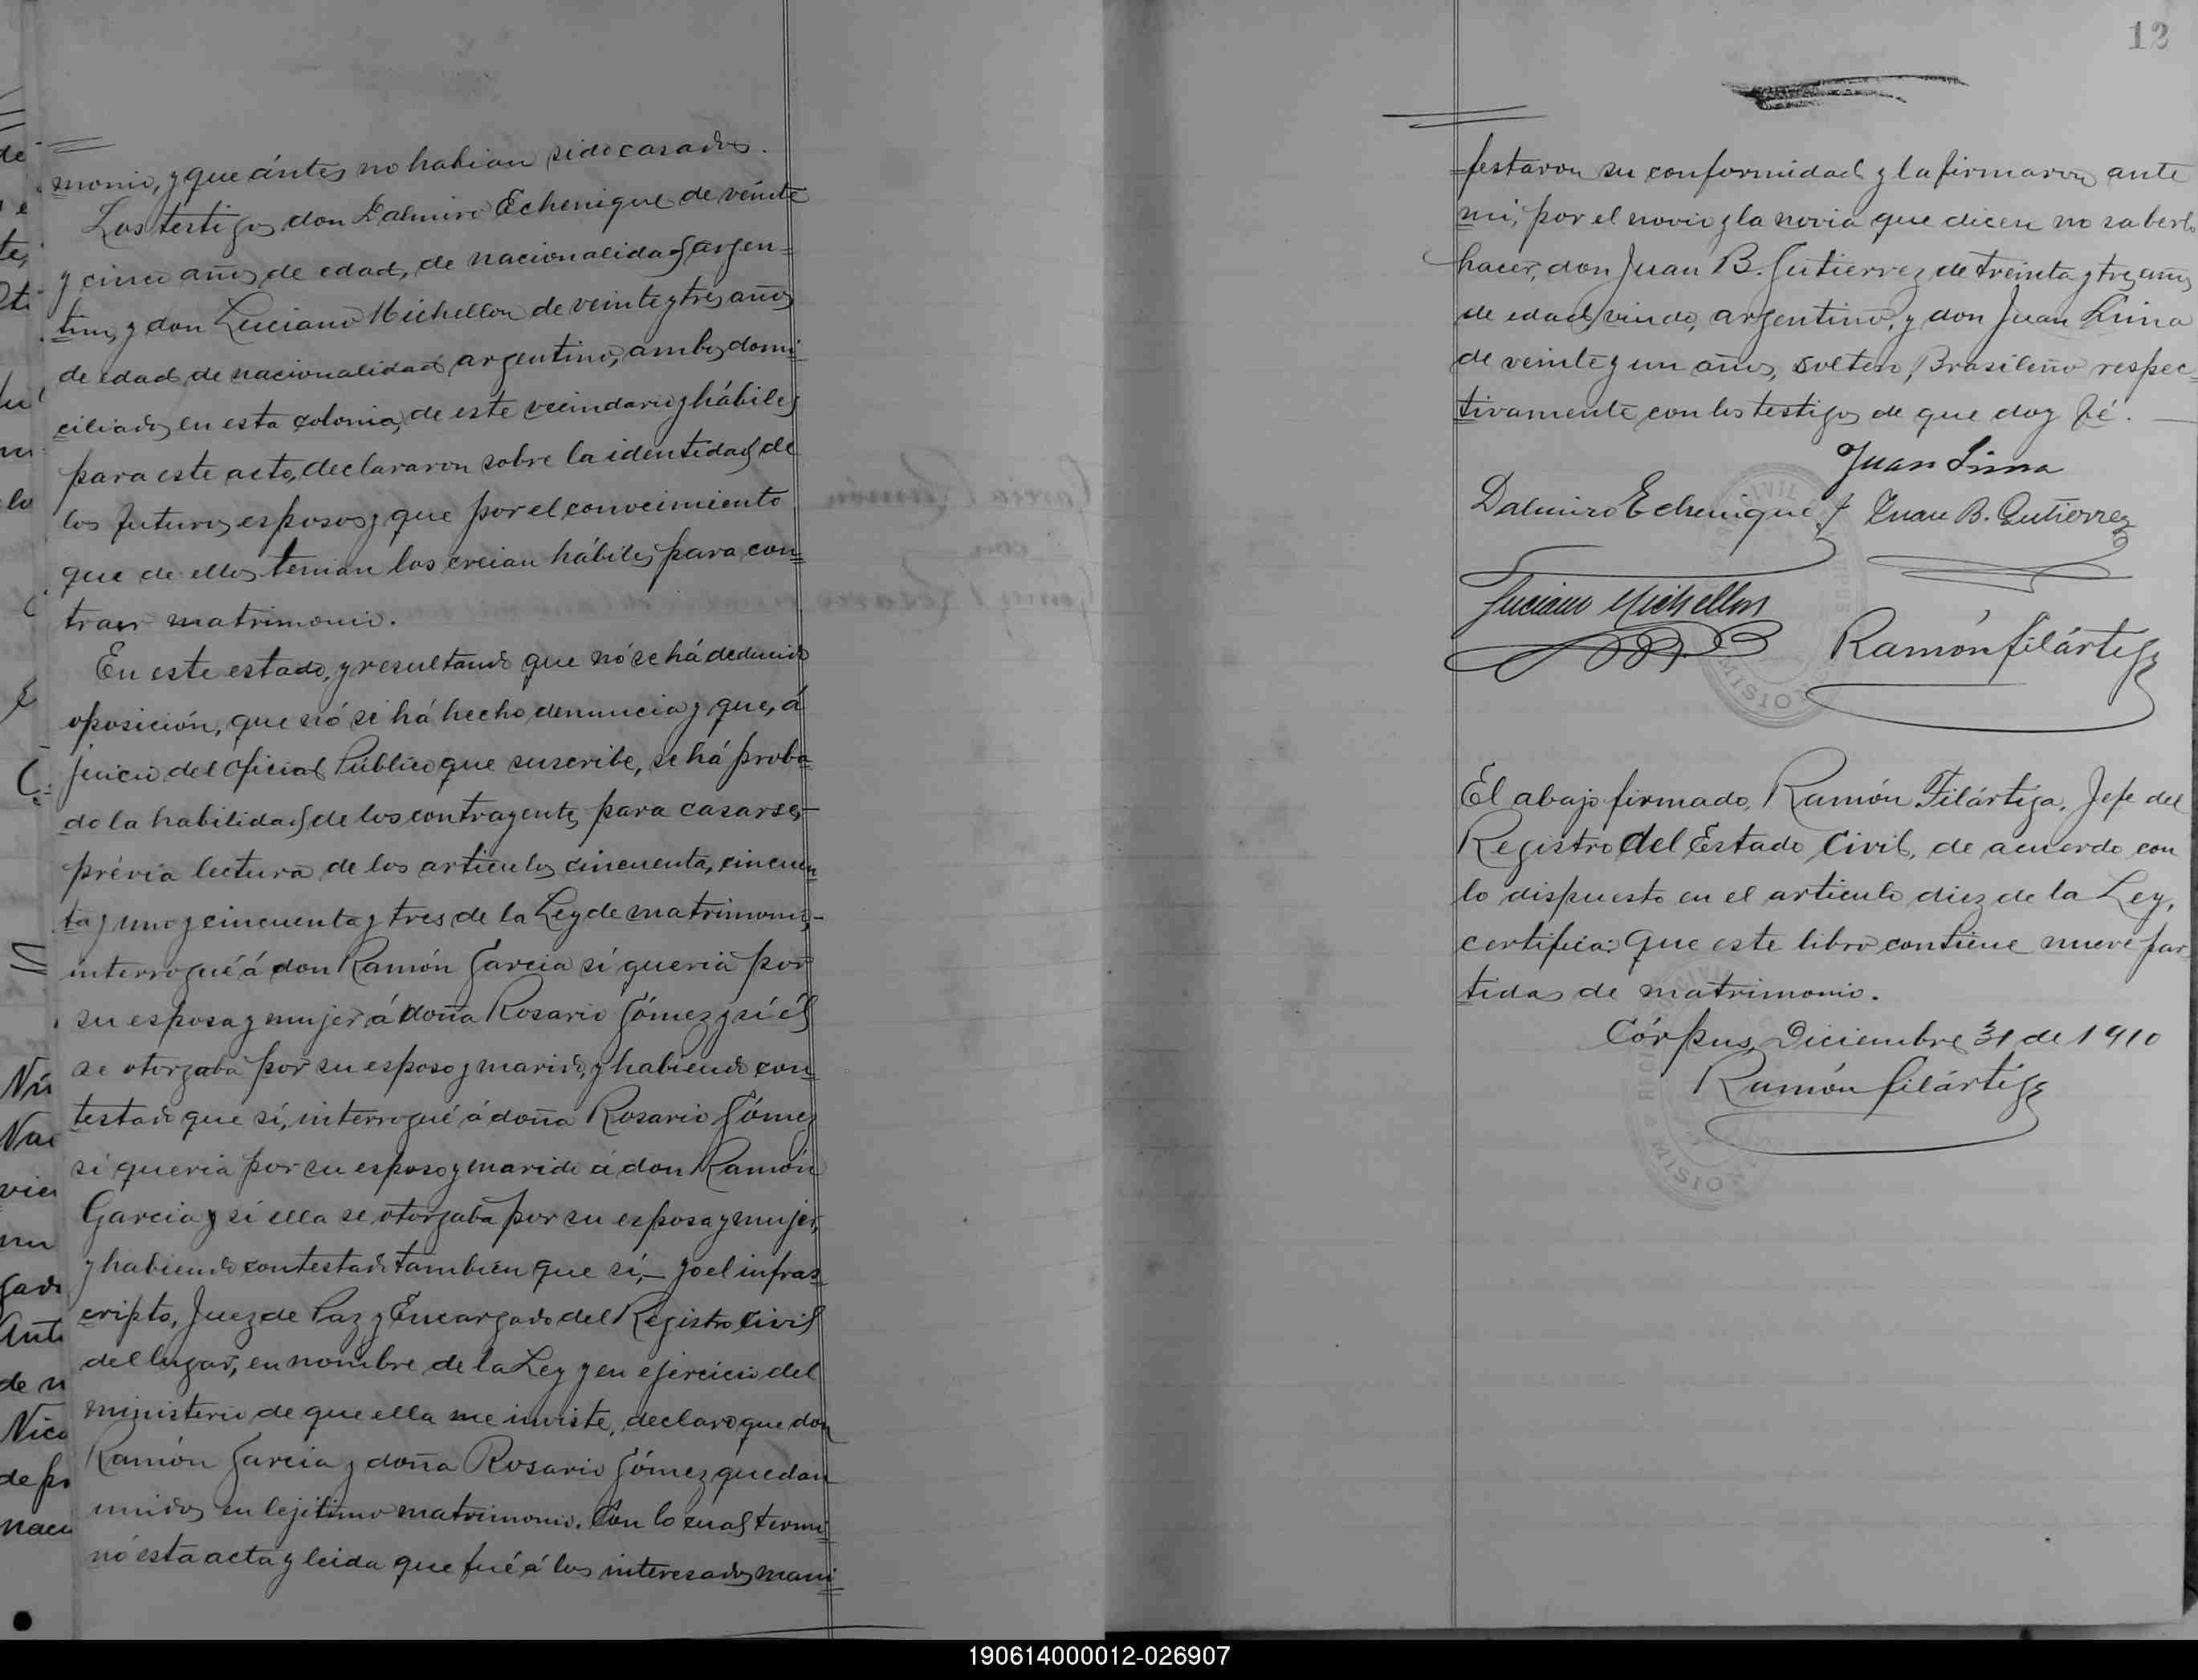 monio, y que ántes no habian sido casados.
Los testigos don Dalmiro Echenique de veinte
y cinco años de edad, de nacionalidad argen=
tino, y don Luciano Michellon de veinte y tres años
de edad, de nacionalidad argentino, ambos domi=
ciliados en esta colonia, de este vecindario y hábiles
para este acto, declararon sobre la identidad de
los futuros esposos y que por el conocimiento
que de ellos tenian los creian hábiles para con=
traer matrimonio.
En este estado, y resultando que nó se há deducido
oposición, que nó se há hecho denuncia y que, á
juicio del oficial Público que suscribe, se há proba=
do la habilidad de los contrayentes para casarse,—
prévia lectura de los articulos cincuenta, cincuen=
ta y uno y cincuenta y tres de la Ley de matrimonio,—
interrogué á don Ramón Garcia sí queria por
su esposa y mujer á doña Rosario Gómez y sí él
se otorgaba por su esposo y marido, y habiendo con=
testado que sí, interrogué á doña Rosario Gómez
sí queria por su esposo y marido á don Ramón
Garcia y sí ella se otorgaba por su esposa y mujer,
y habiendo contestado tambien que sí,— yo el infras=
cripto, Juez de Paz y Encargado del Registro Civil
del lugar, en nombre de la Ley y en ejercicio del
ministerio de que ella me inviste, declaro que don
Ramón Garcia y doña Rosario Gómez quedan
unidos en lejitimo matrimonio. Con lo cual termi=
nó esta acta y leida que fué á los interesados mani=
12
festaron su conformidad y la firmaron ante
mi, por el novio y la novia que dicen no saberlo
hacer, don Juan B. Gutierrez de treinta y tres años
de edad, viudo, argentino, y don Juan Lima
de veinte y un años, soltero, Brasileño respec=
tivamente con los testigos de que doy fé.—
Juan Lima
Dalmiro Echenique Juan B. Gutierrez
Luciano Michellon
Ramón Filártiga
El abajo firmado, Ramón Filártiga, Jefe del
Registro del Estado Civil, de acuerdo con
lo dispuesto en el articulo diez de la Ley,
certifica: Que este libro contiene nueve par=
tidas de matrimonio.
Córpus, Diciembre 31 de 1910
Ramón Filártiga
190614000012-026907